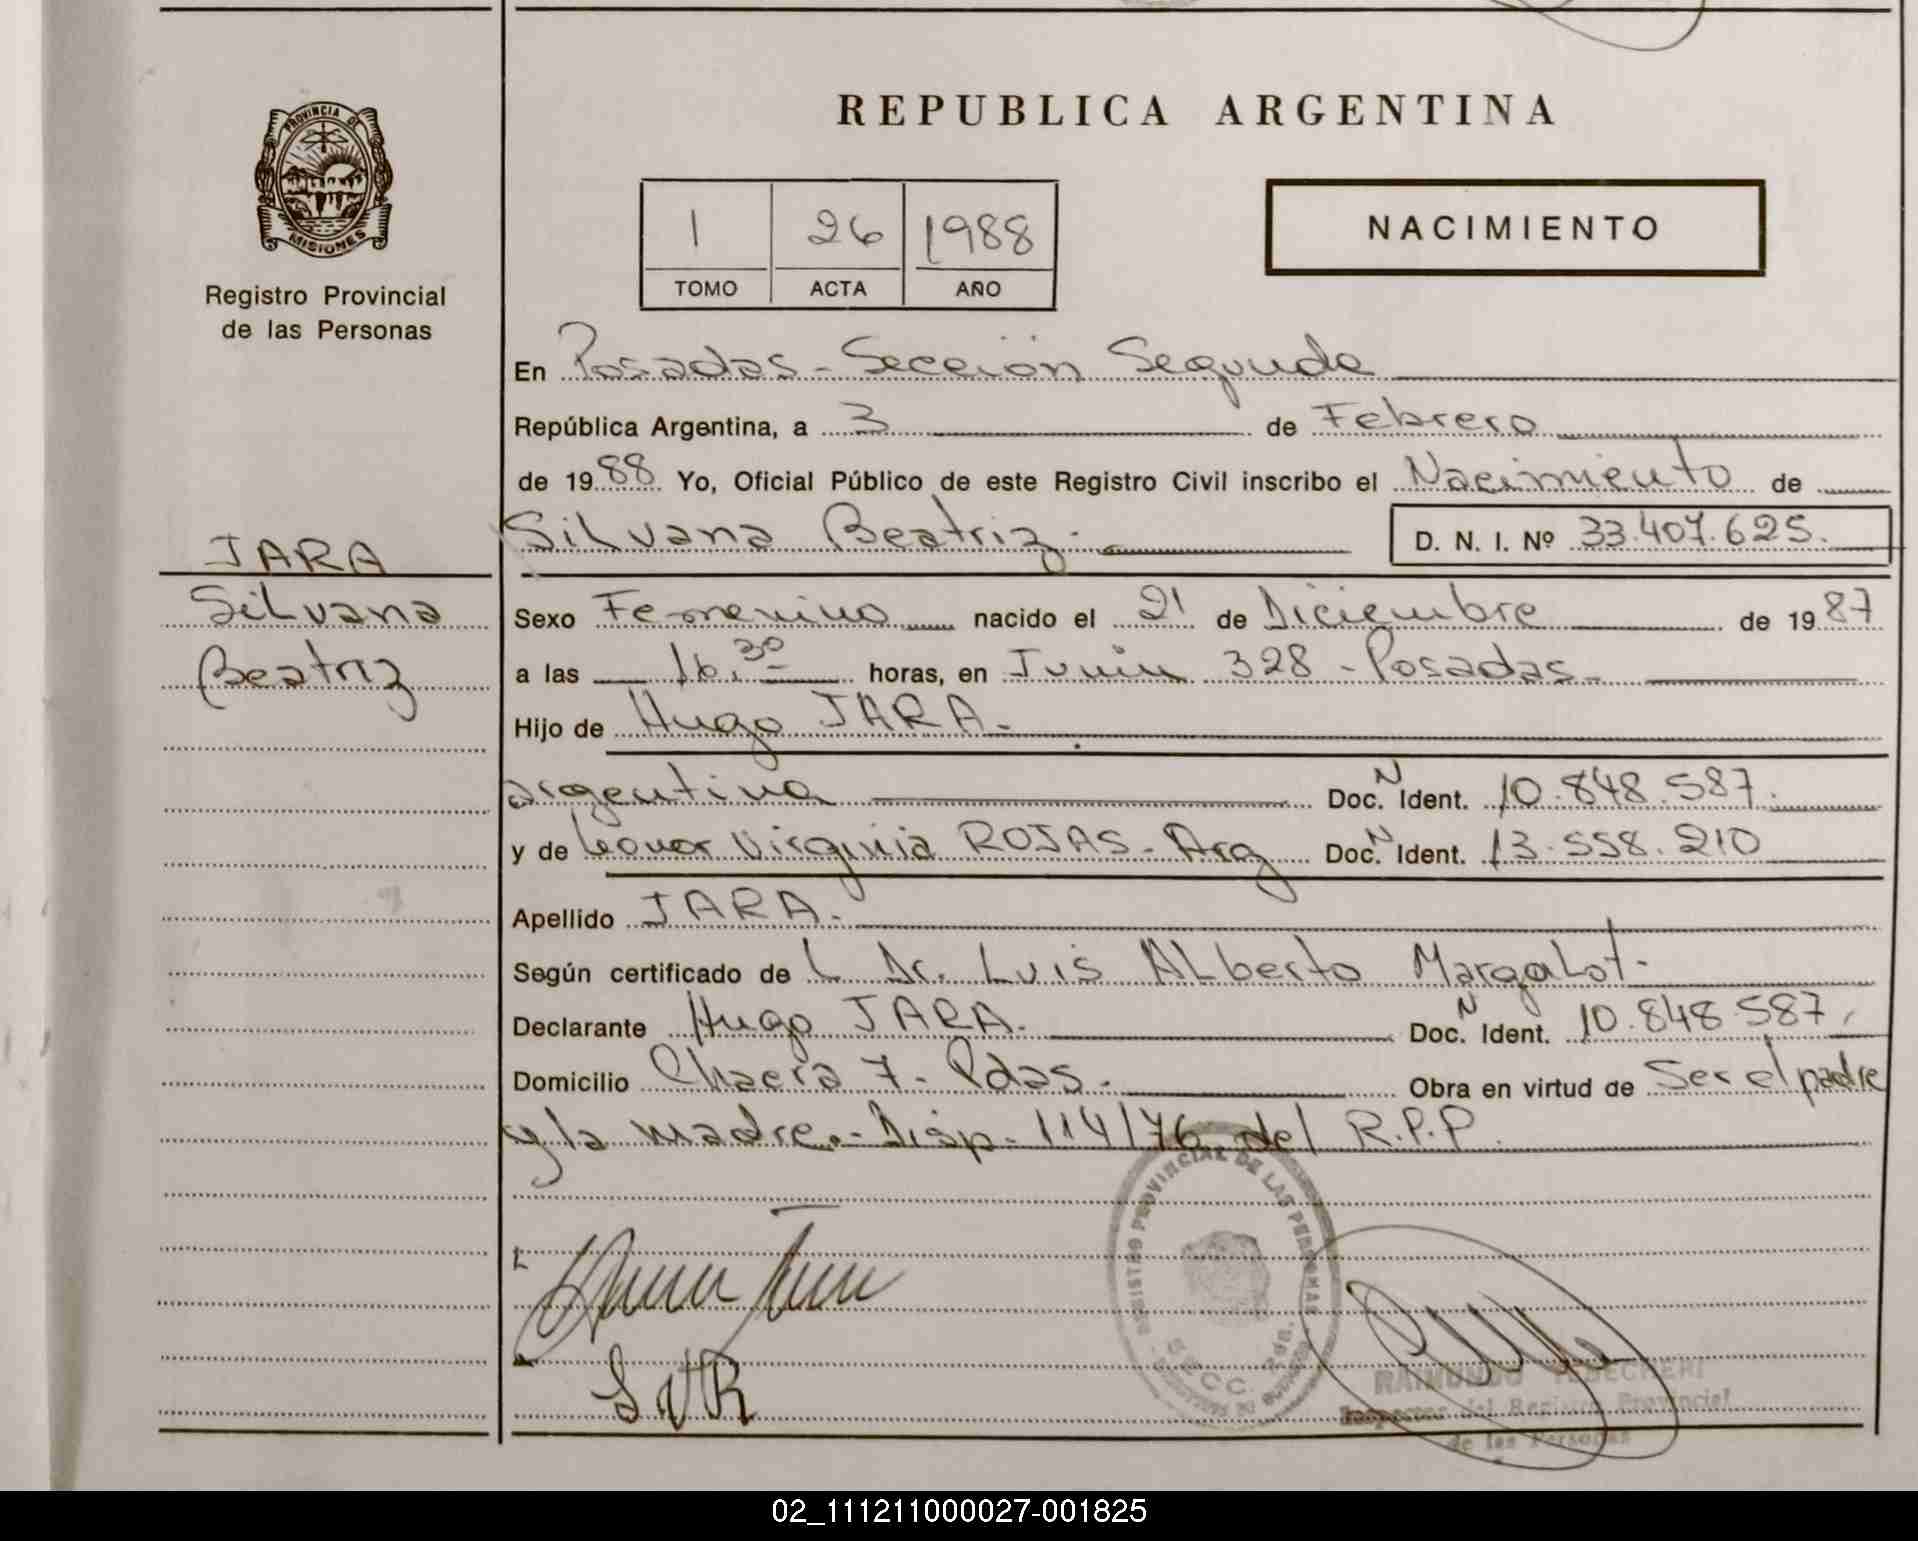 PROVINCIA DE
MISIONES
Registro Provincial
de las Personas
REPUBLICA ARGENTINA
1 26 1988
TOMO ACTA AÑO
NACIMIENTO
En Posadas - Sección Segunda
República Argentina, a 3 de Febrero
de 1988 Yo, Oficial Público de este Registro Civil inscribo el Nacimiento de
JARA
Silvana Beatriz. D. N. I. Nº 33.407.625.
Silvana
Sexo Femenino nacido el 21 de Diciembre de 1987
Beatriz
a las 16.30 horas, en Junin 328 - Posadas.
Hijo de Hugo JARA.
argentina Doc. N Ident. 10.848.587.
y de Leonor Virginia ROJAS. Arg Doc. N Ident. 13.558.210
Apellido JARA.
Según certificado de L Dr. Luis Alberto Margalot.
Declarante Hugo JARA. Doc. N Ident. 10.848.587.
Domicilio Chacra 7. Pdas. Obra en virtud de Ser el padre
y la madre.- Disp. 114/76 del R.P.P.
REGISTRO PROVINCIAL DE LAS PERSONAS
L.V.R
RAIMUNDO
Inspector del Registro Provincial
de las Personas
02_111211000027-001825